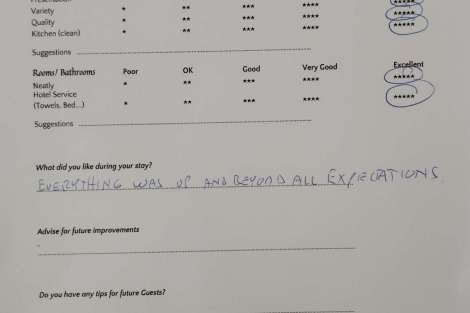 Presentation
Variety * ** *** **** *****
Quality * ** *** **** *****
Kitchen (clean) * ** *** ****
Suggestions
Rooms/ Bathrooms Poor OK Good Very Good Excellent
Neatly * ** *** **** *****
Hotel Service
(Towels, Bed...) * ** *** **** *****
Suggestions
What did you like during your stay?
EVERYTHING WAS UP AND BEYOND ALL EXPECTATIONS
Advise for future improvements
Do you have any tips for future Guests?